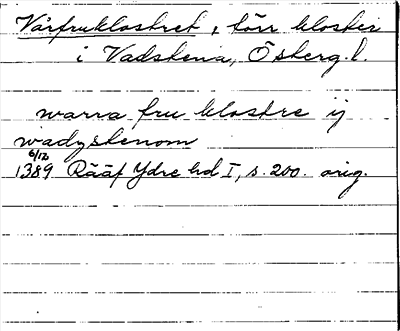 Vårfruklostret, förr kloster
i Vadstena, Österg. l.
warra fru klostre ij
wadzstenom
6/12
1389 Rääf Ydre hd I, s. 200. orig.